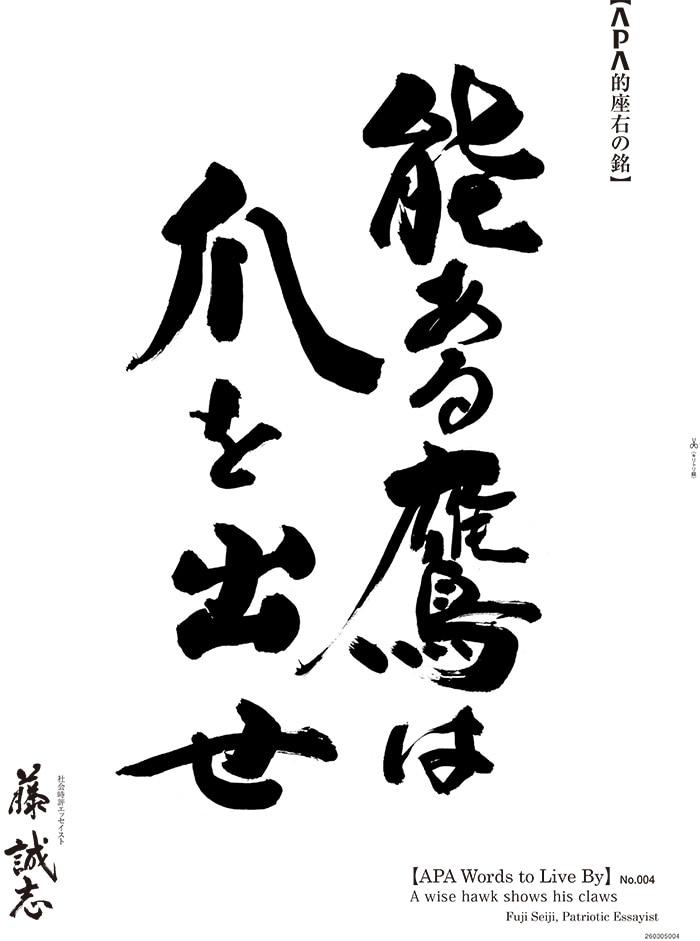 【APA的座右の銘】
能ある鷹は
爪を出せ
社会時評エッセイスト
藤 誠志
(キリトリ線)
【APA Words to Live By】 No.004
A wise hawk shows his claws
Fuji Seiji, Patriotic Essayist
260305004